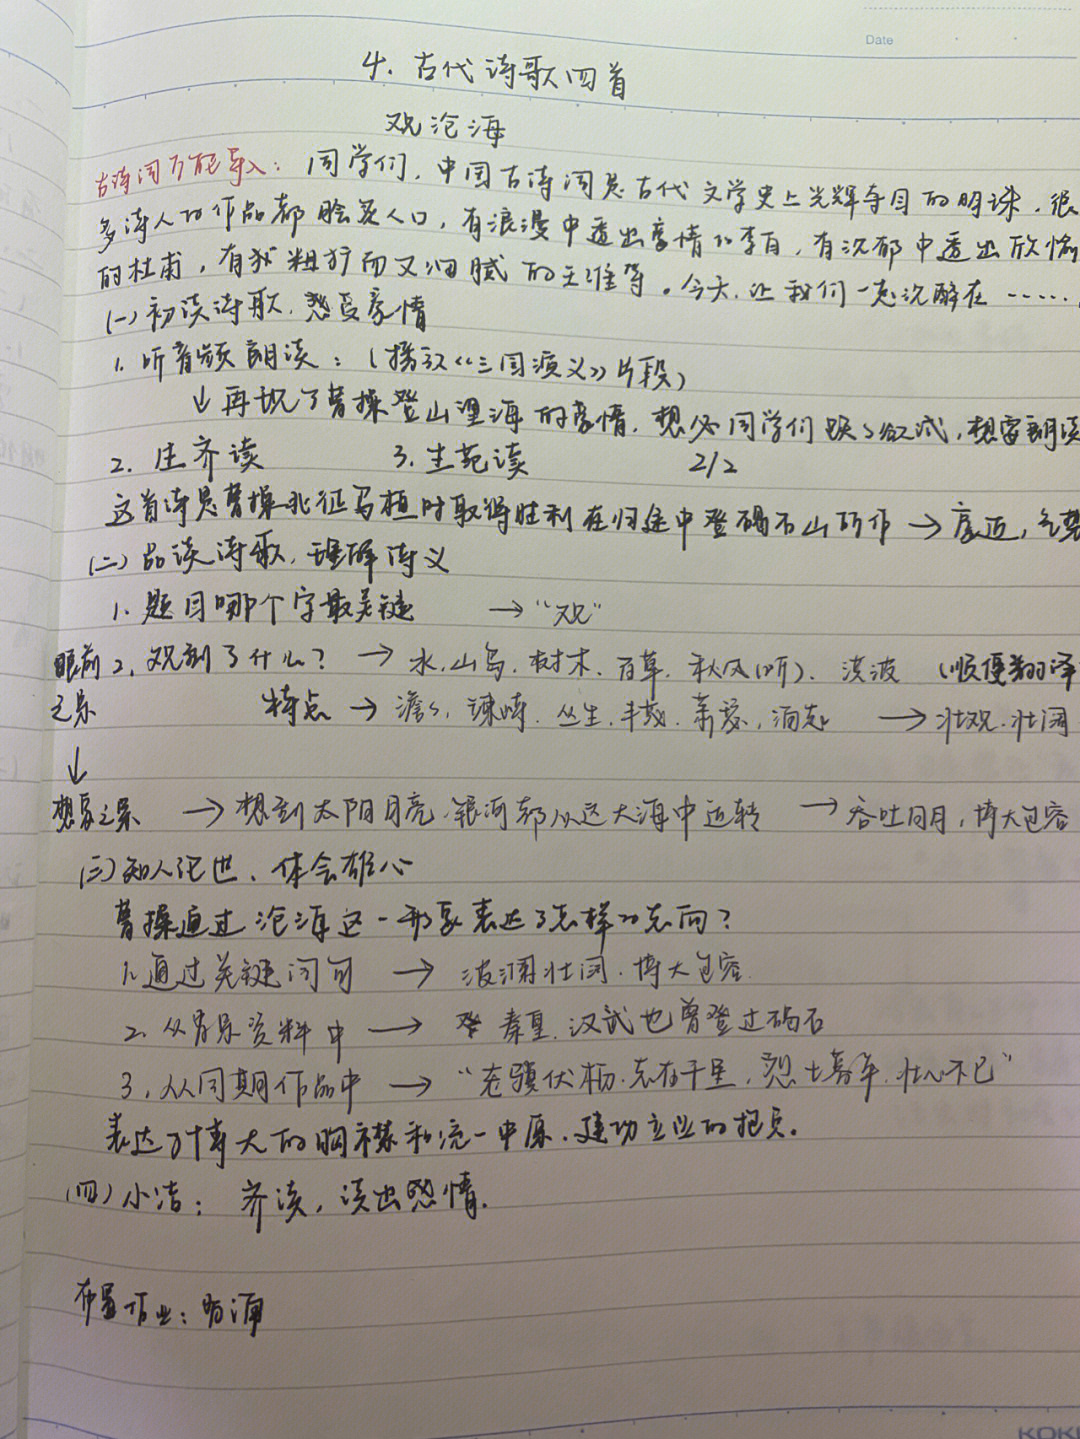 Date
4. 古代诗歌四首
观沧海
古诗词万能导入：同学们，中国古诗词是古代文学史上光辉夺目的明珠，很
多诗人的作品都脍炙人口，有浪漫中透出豪情的李白，有沉郁中透出欣愉
的杜甫，有粗犷而又细腻的王维等。今天，让我们一起沉醉在……
(一) 初读诗歌，感受豪情
1. 听音频朗读：(播放《三国演义》片段)
↓再现了曹操登山望海的豪情，想必同学们跃跃欲试，想要朗读
2. 生齐读 3. 生范读 2/2
这首诗是曹操北征乌桓时取得胜利在归途中登碣石山所作→ 气势
(二) 品读诗歌，理解诗义
1. 题目哪个字最关键 →“观”
眼前 2. 观到了什么？ → 水、山岛、树木、百草、秋风(听)、洪波 (顺便翻译
之景 特点 → 澹澹、竦峙、丛生、丰茂、萧瑟、涌起 → 壮观、壮阔
↓
想象之景 → 想到太阳月亮、银河都从这大海中运转 → 吞吐日月，博大包容
(三) 知人论世，体会雄心
曹操通过沧海这一形象表达了怎样的志向？
1. 通过关键词句 → 波澜壮阔、博大包容
2. 从背景资料中 → 秦皇、汉武也曾登过碣石
3. 从同期作品中 → “老骥伏枥，志在千里，烈士暮年，壮心不已”
表达了博大的胸襟和统一中原、建功立业的抱负。
(四) 小结：齐读，读出感情.
布置作业：背诵